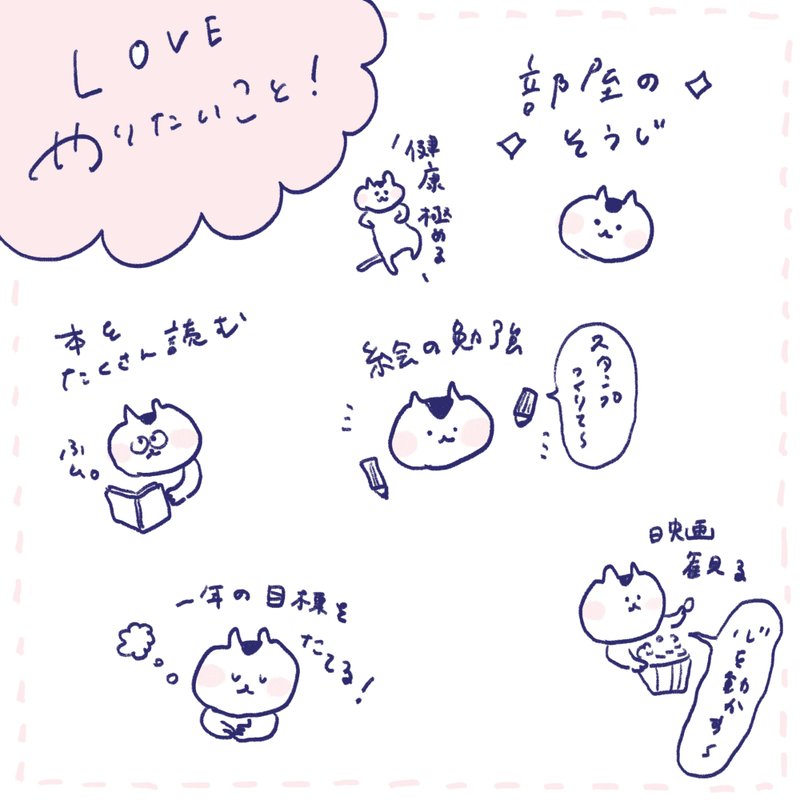 LOVE
やりたいこと!
部屋の
そうじ
健康
極める
本を
たくさん読む
ふ
ム。
絵の勉強
スタンプ
つくりて〜
映画
観る
心を動かす〜
一年の目標を
たてる!